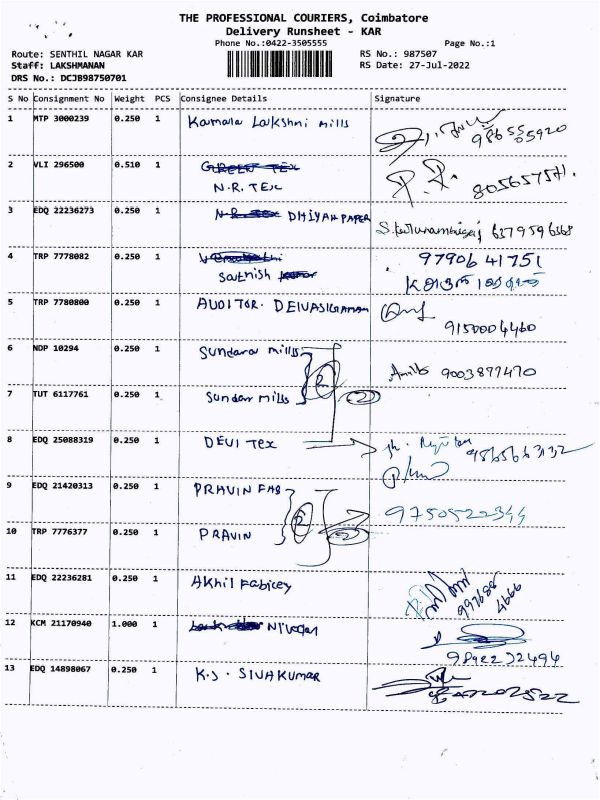 THE PROFESSIONAL COURIERS, Coimbatore
Delivery Runsheet - KAR
Phone No.:0422-3505555 Page No.:1
Route: SENTHIL NAGAR KAR RS No.: 987507
Staff: LAKSHMANAN RS Date: 27-Jul-2022
DRS No.: DCJB98750701
S No Consignment No Weight PCS Consignee Details Signature
1 MTP 3000239 0.250 1 Kamala Lakshmi mills
2 VLI 296500 0.510 1
N.R. TEX
3 EDQ 22236273 0.250 1 DHIYAN PAPER 6379596368
4 TRP 7778082 0.250 1 97906 41751
Sathish
5 TRP 7780800 0.250 1 AUDITOR. DEIVASIGAMANI
9150004460
6 NDP 10294 0.250 1 Sundara mills
9003877470
7 TUT 6117761 0.250 1 Sundar mills
8 EDQ 25088319 0.250 1 DEVI Tex
9 EDQ 21420313 0.250 1 PRAVIN FAB
9750522344
10 TRP 7776377 0.250 1 PRAVIN
11 EDQ 22236281 0.250 1 AKhil Fabicey
12 KCM 21170940 1.000 1
13 EDQ 14898067 0.250 1 K.S. SIVAKUMAR